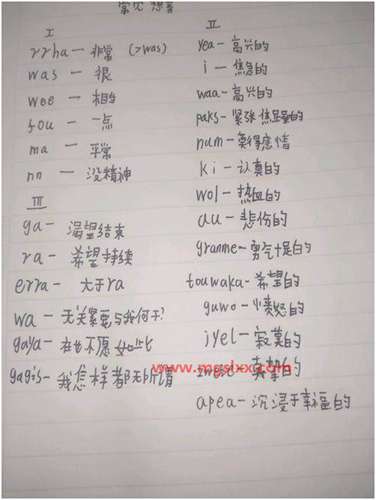 常见想音
I
rrha — 非常 (>was)
was — 很
wee — 相当
fou — 一点
ma — 平常
nn — 没精神
III
ga — 渴望结束
ra — 希望持续
erra — 大于ra
wa — 无关紧要与我何干?
gaya — 再也不愿如此
gagis — 我怎样都无所谓
II
yea — 高兴的
i — 焦急的
waa — 高兴的
paks — 紧张焦虑的
num — 莫得感情
ki — 认真的
wol — 热血的
au — 悲伤的
granme — 勇气十足的
touwaka — 希望的
guwo — 愤怒的
jyel — 寂寞的
真挚的
apea — 沉浸于幸福的
www.mgslxx.com